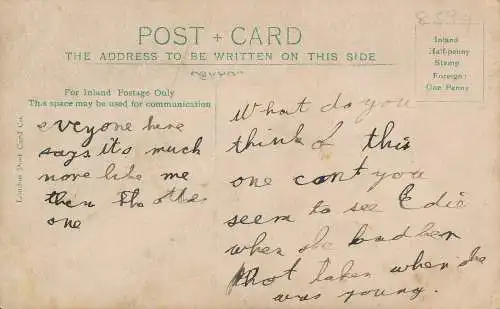 8594
POST + CARD
THE ADDRESS TO BE WRITTEN ON THIS SIDE
Inland
Half-penny
Stamp
Foreign:
One Penny
For Inland Postage Only
This space may be used for communication
London Post Card Co.
everyone here
says its much
more like me
then the other
one
What do you
think of this
one cant you
seem to see Edie
when she had her
Phot taken when she
was young.